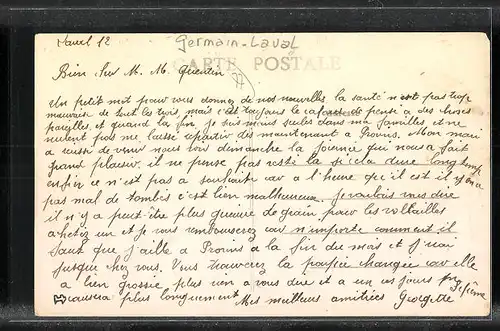 Mardi 12
Germain-Laval
CARTE POSTALE
Bien M. M. Quentin
Un petit mot pour vous donnez de nos nouvelles la santé n'est pas trop
mauvaise de tout les trois, mais c'est toujours le cafard de penser a des choses
pareilles, et quand la fin je suis moins seule dans ma familles et ne
veulent pas me laisser repartir des maintenant a Provins. Mon mari
a reussi de venir nous voir dimanche la journée qui nous a fait
grand plaisir, il ne pense pas resté la si cela dure longtemps
enfin ce n'est pas a souhaité car a l'heure qu'il est il y en a
pas mal de tombés c'est bien malheureux. Je voulais mes dire
il n'y a peut être plus guerre de grain pour les volailles
achetez en et je vous rembourserez car n'importe comment il
faut que j'aille a Provins a la fin du mois et j'irai
jusque chez vous. Vous trouverez la poupée changée car elle
a bien grossie, plus rien a vous dire et a un ces jours
causera plus longuement Mes meilleurs amitiées Georgette